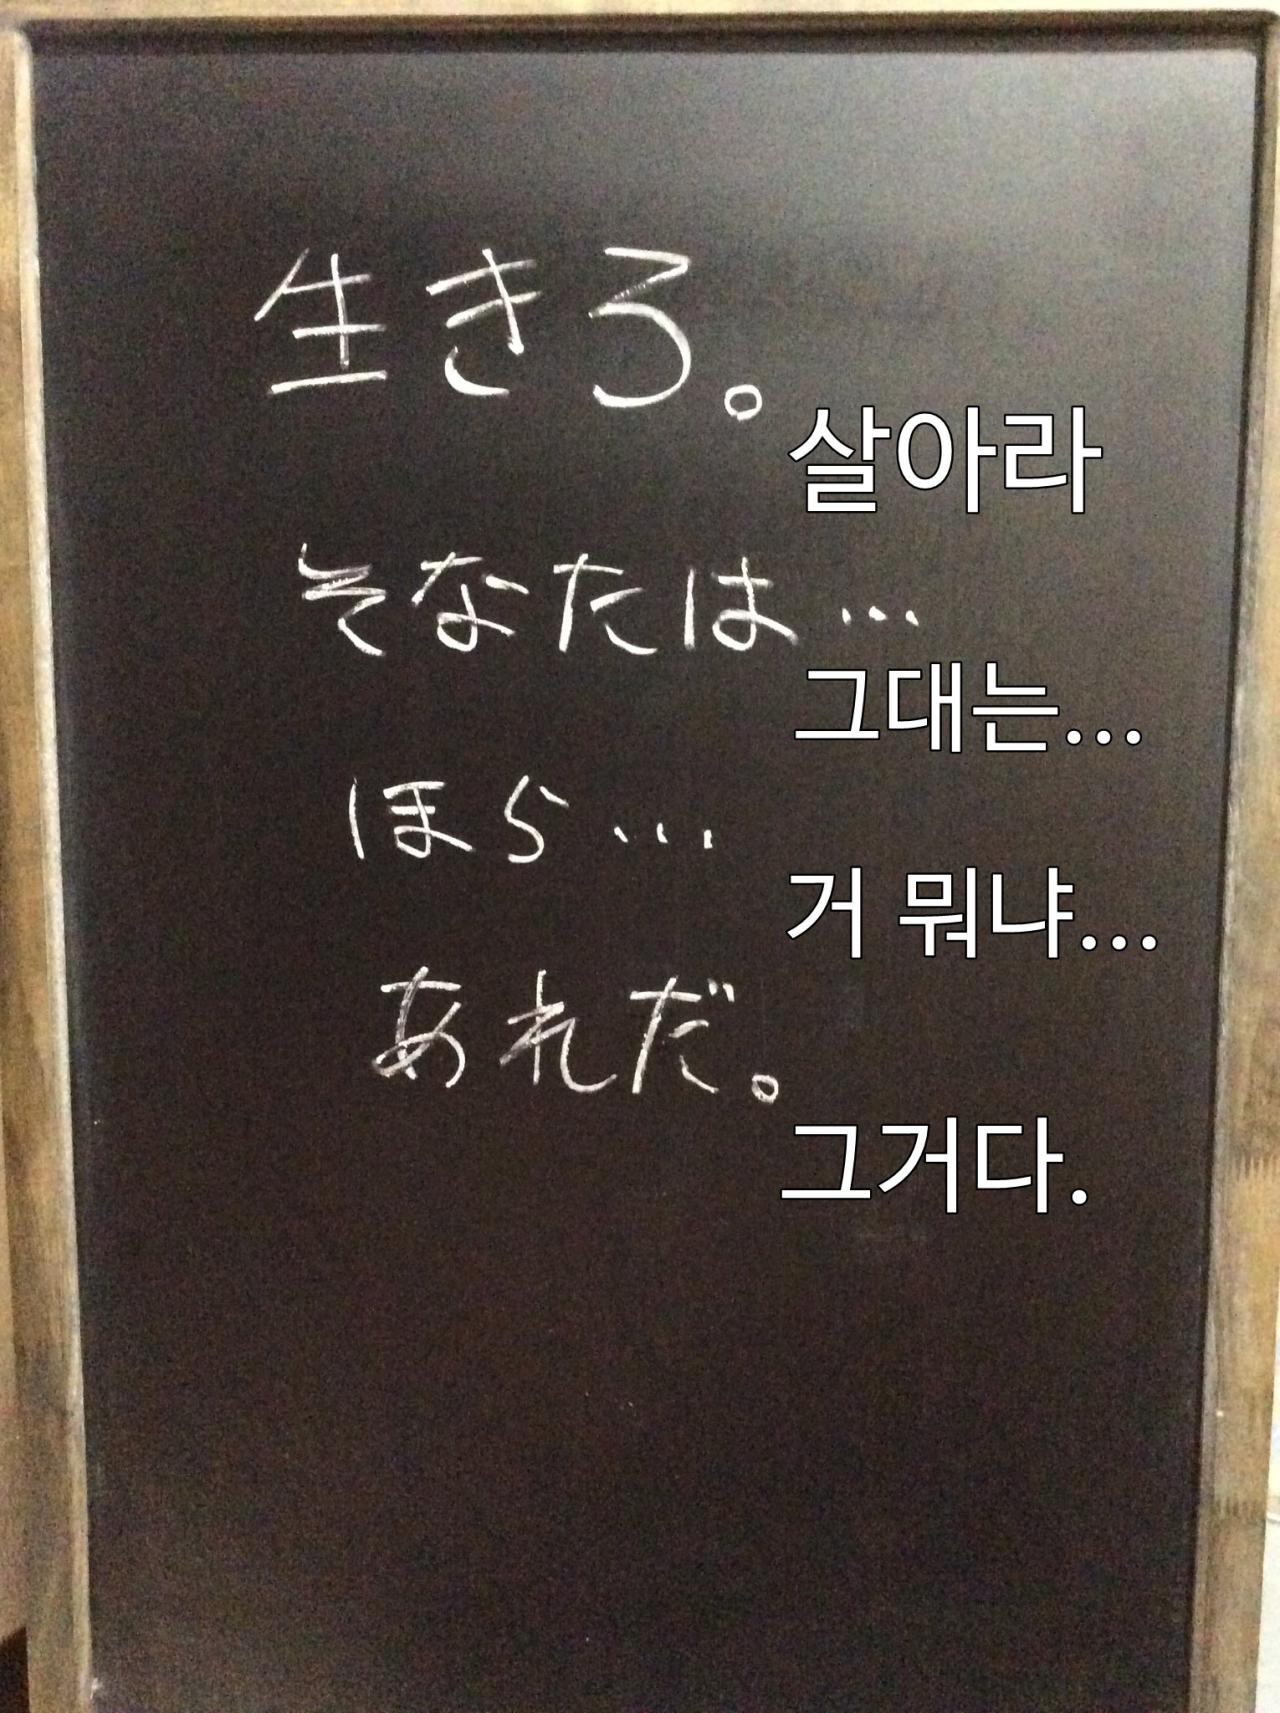 生きろ。
살아라
そなたは…
그대는...
ほら…
거 뭐냐...
あれだ。
그거다.